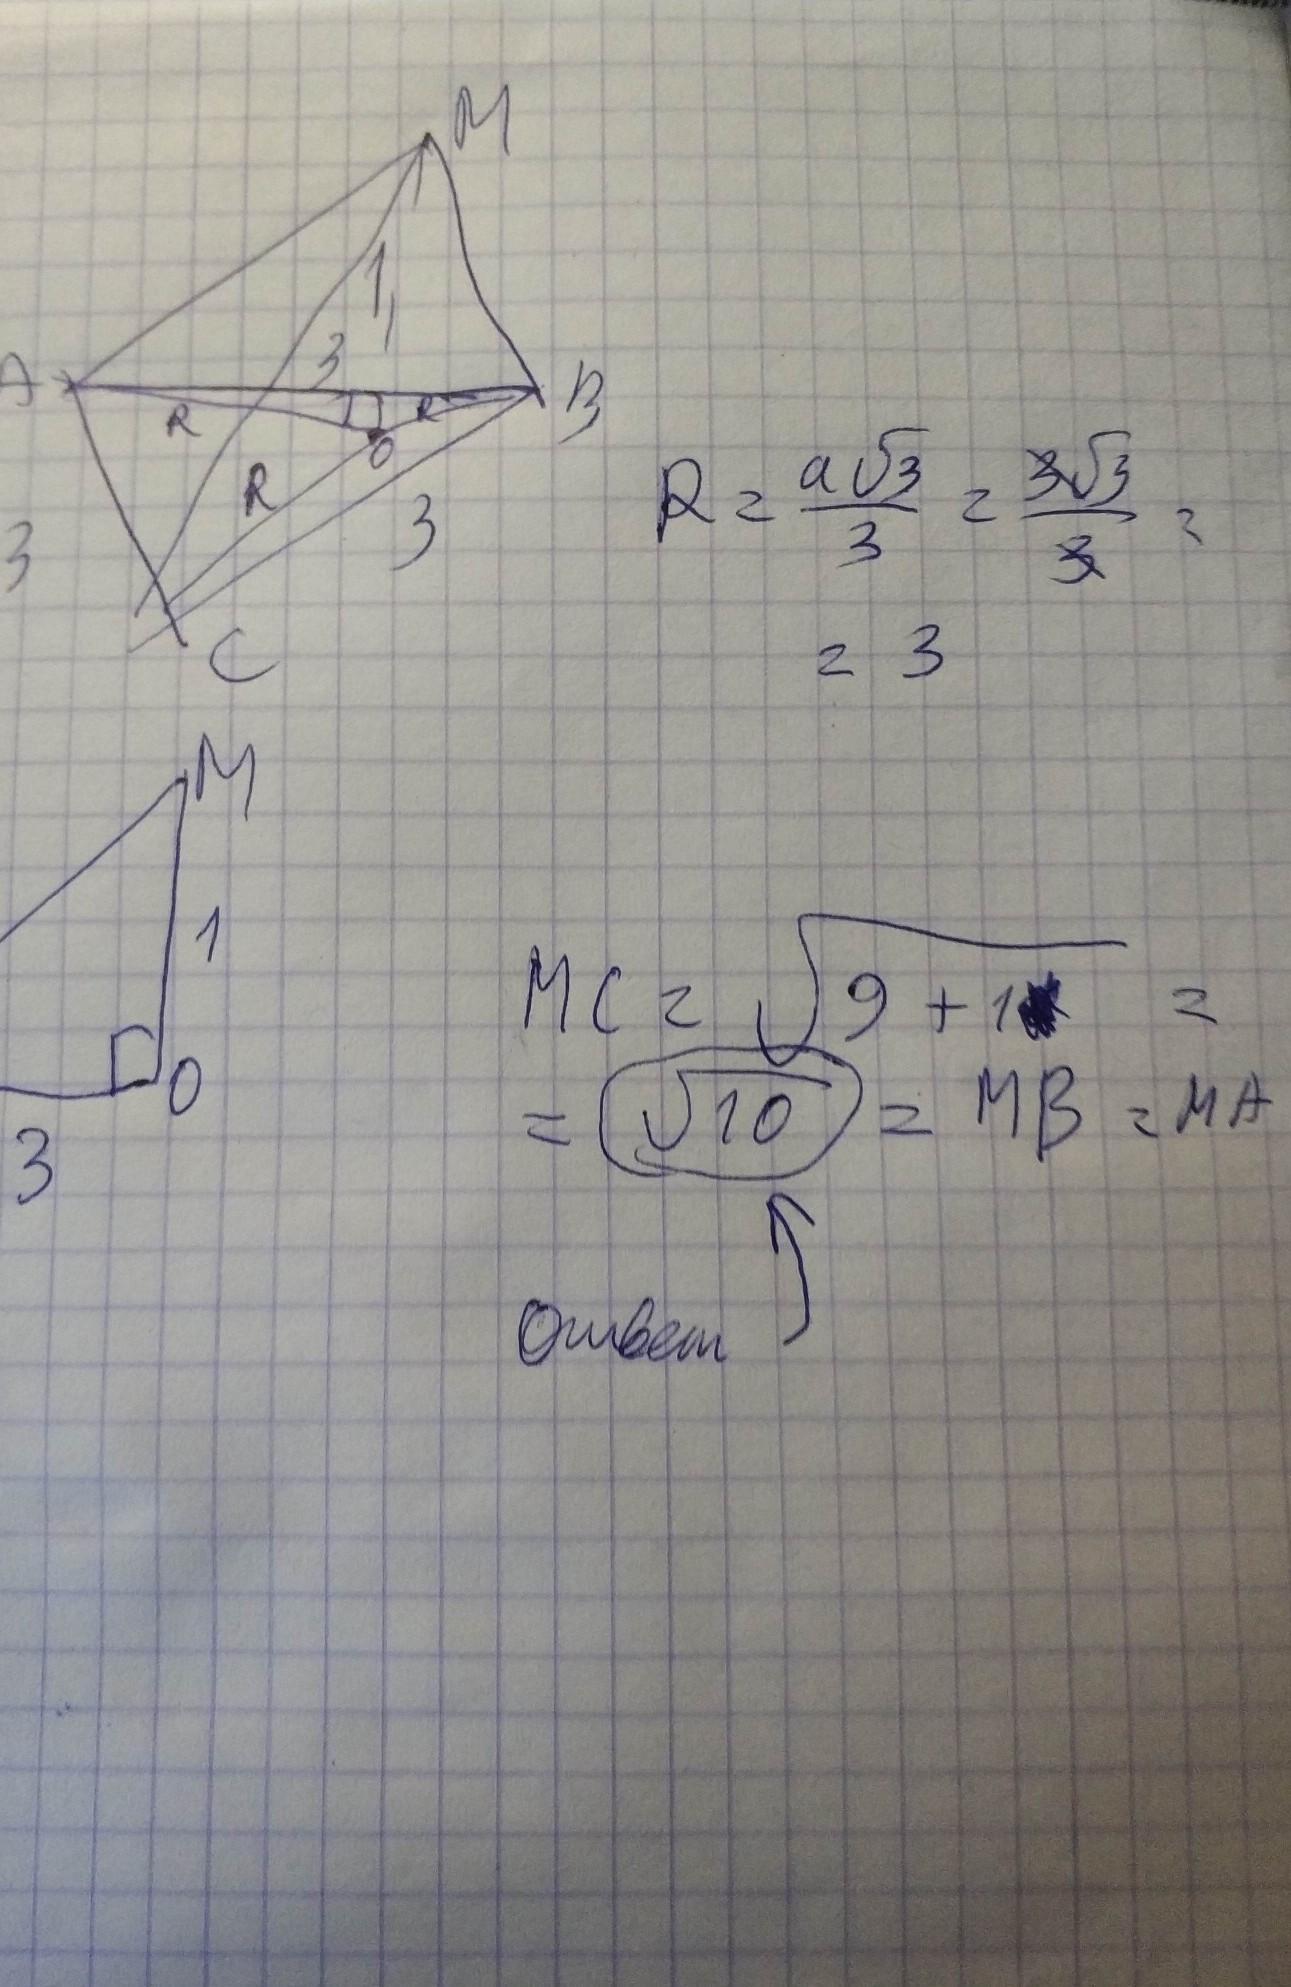 M
1
3
A
B
R
R
O
R
3
3
C
R = a√3/3 = 3√3/3 =
= 3
M
1
O
3
MC = √9 + 1 =
= √10 = MB = MA
Ответ